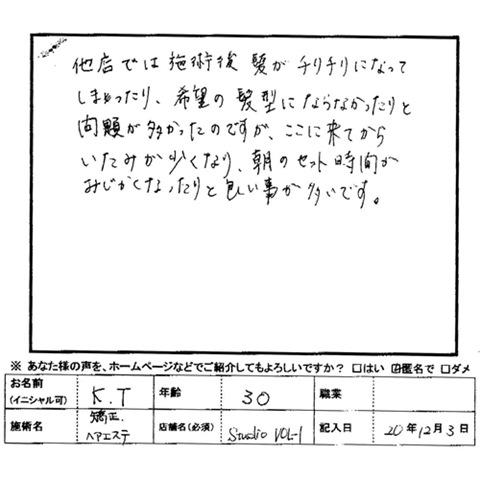 他店では施術後髪がチリチリになって
しまったり、希望の髪型にならなかったりと
問題が多かったのですが、ここに来てから
いたみが少くなり、朝のセット時間が
みじかくなったりと良い事が多いです。
※ あなた様の声を、ホームページなどでご紹介してもよろしいですか? □はい ☑匿名で □ダメ
お名前 (イニシャル可) K.T 年齢 30 職業
施術名 矯正. ヘアエステ 店舗名(必須) Studio VOL-1 記入日 20年12月3日